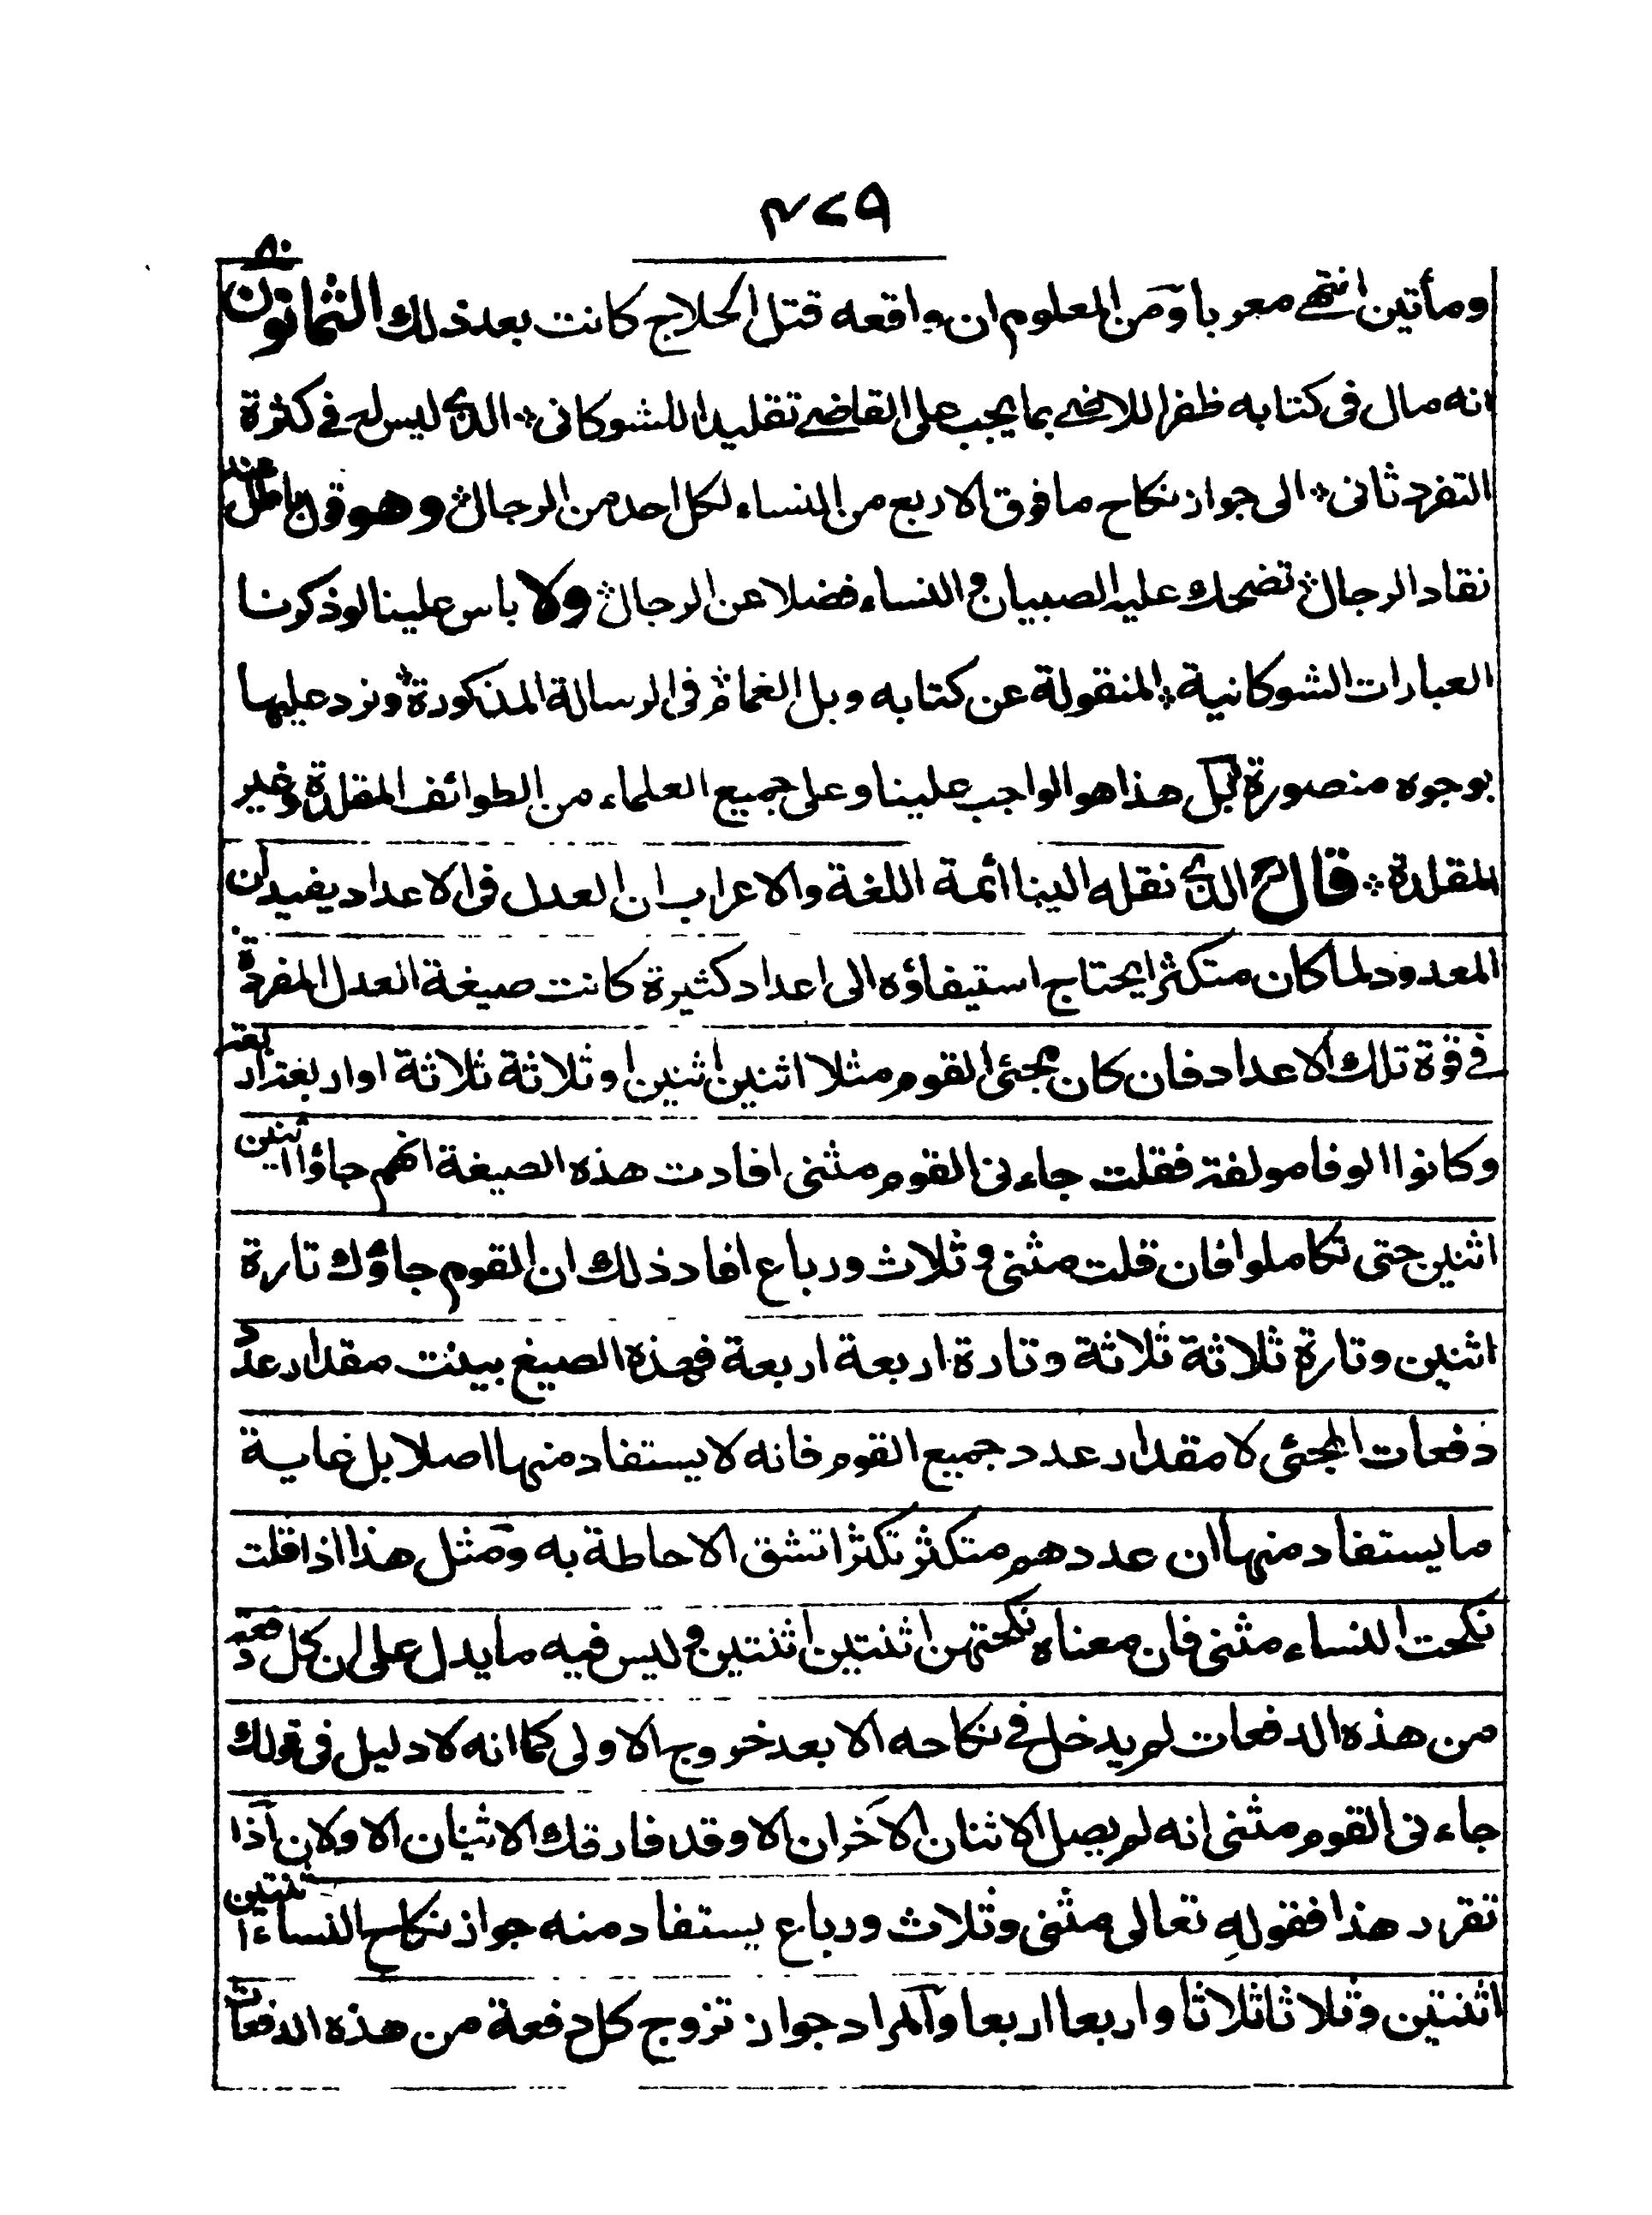 ٤٢٩
٨٠
ومأتين انتهى معربا ومن المعلوم ان واقعه قتل الحلاج كانت بعد ذلك الثمانون
انه مال فى كتابه ظفر اللاضى بما يجب على القاضى تقليدا للشوكانى الذى ليس له فى كثرة
التفرد ثانى الى جواز نكاح ما فوق الاربع من النساء لكل احد من الرجال وهو قول باطل عند
نقاد الرجال تضحك عليه الصبيان والنساء فضلا عن الرجال ولا باس علينا لو ذكرنا
العبارات الشوكانية المنقولة عن كتابه وبل الغمام فى الرسالة المذكورة ونرد عليها
بوجوه منصورة بل هذا هو الواجب علينا وعلى جميع العلماء من الطوائف المقلدة وغير
المقلدة قال الذى نقله الينا ائمة اللغة والاعراب ان العدل فى الاعداد يفيد ان
المعدود لما كان متكثرا يحتاج استيفاؤه الى اعداد كثيرة كانت صيغة العدل المفردة
فى قوة تلك الاعداد فان كان مجئى القوم مثلا اثنين اثنين او ثلاثة ثلاثة او اربعة اربعة
وكانوا الوفا مولفة فقلت جاءنى القوم مثنى افادت هذه الصيغة انهم جاؤا اثنين
اثنين حتى تكاملوا فان قلت مثنى وثلاث ورباع افاد ذلك ان القوم جاؤك تارة
اثنين وتارة ثلاثة ثلاثة وتارة اربعة اربعة فهذه الصيغ بينت مقدار عدد
دفعات المجئى لا مقدار عدد جميع القوم فانه لا يستفاد منها اصلا بل غاية
ما يستفاد منها ان عددهم متكثر تكثرا تشق الاحاطة به ومثل هذا اذا قلت
نكحت النساء مثنى فان معناه نكحتهن اثنتين اثنتين وليس فيه ما يدل على ان كل دفعة
من هذه الدفعات لم يدخل فى نكاحه الا بعد خروج الاولى كما انه لا دليل فى قولك
جاءنى القوم مثنى انه لم يصل الاثنان الآخران الا وقد فارقك الاثنان الاولان اذا
تقرر هذا فقوله تعالى مثنى وثلاث ورباع يستفاد منه جواز نكاح النساء اثنتين
اثنتين وثلاثا ثلاثا واربعا اربعا والمراد جواز تزوج كل دفعة من هذه الدفعات